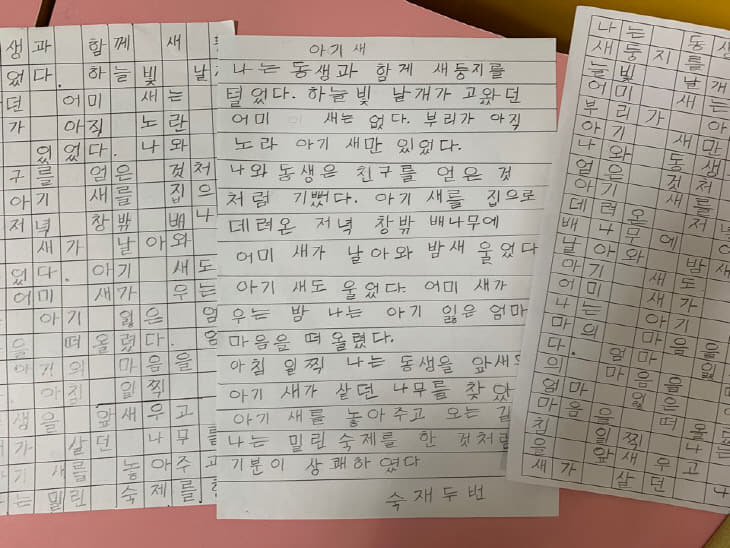 생과 함께 새
었다. 하늘빛 날
던 어미 새는
가 아직 노란
있었다. 나와
구를 얻은 것처
아기 새를 집으
저녁 창밖 배나
새가 날아와
었다. 아기 새도
어미 새가 우는
아기 잃은 엄
을 떠올렸다. 엄
아기의 마음을
아침 일찍
생을 앞새우고
가 살던 나무를
기 새를 놓아주고
는 밀린 숙제를
아기 새
나는 동생과 함께 새둥지를
털었다. 하늘빛 날개가 고왔던
어미 새는 없다. 부리가 아직
노라 아기 새만 있었다.
나와 동생은 친구를 얻은 것
처럼 기뻤다. 아기 새를 집으로
데려온 저녁 창밖 배나무에
어미 새가 날아와 밤새 울었다
아기 새도 울었다 어미 새가
우는 밤 나는 아기 잃은 엄마
마음을 떠올렸다.
아침 일찍 나는 동생을 앞새우
아기 새가 살던 나무를 찾았
아기 새를 놓아주고 오는 길
나는 밀린 숙제를 한 것처럼
기분이 상쾌하였다
숙재두번
나는 동생
새둥지를
늘빛 날개
어미 새는
부리가 아
아기 새만
나와 동생
얻은 것처
아기 새를
데려온 저녁
배나무에
날아와 밤새
아기 새도
어미 새가
나는 아기
마의 마음을
다. 엄마 잃
의 마음을
엄마 잃은
마음을 떠올
침 일찍 나는
을 앞새우고
새가 살던 나